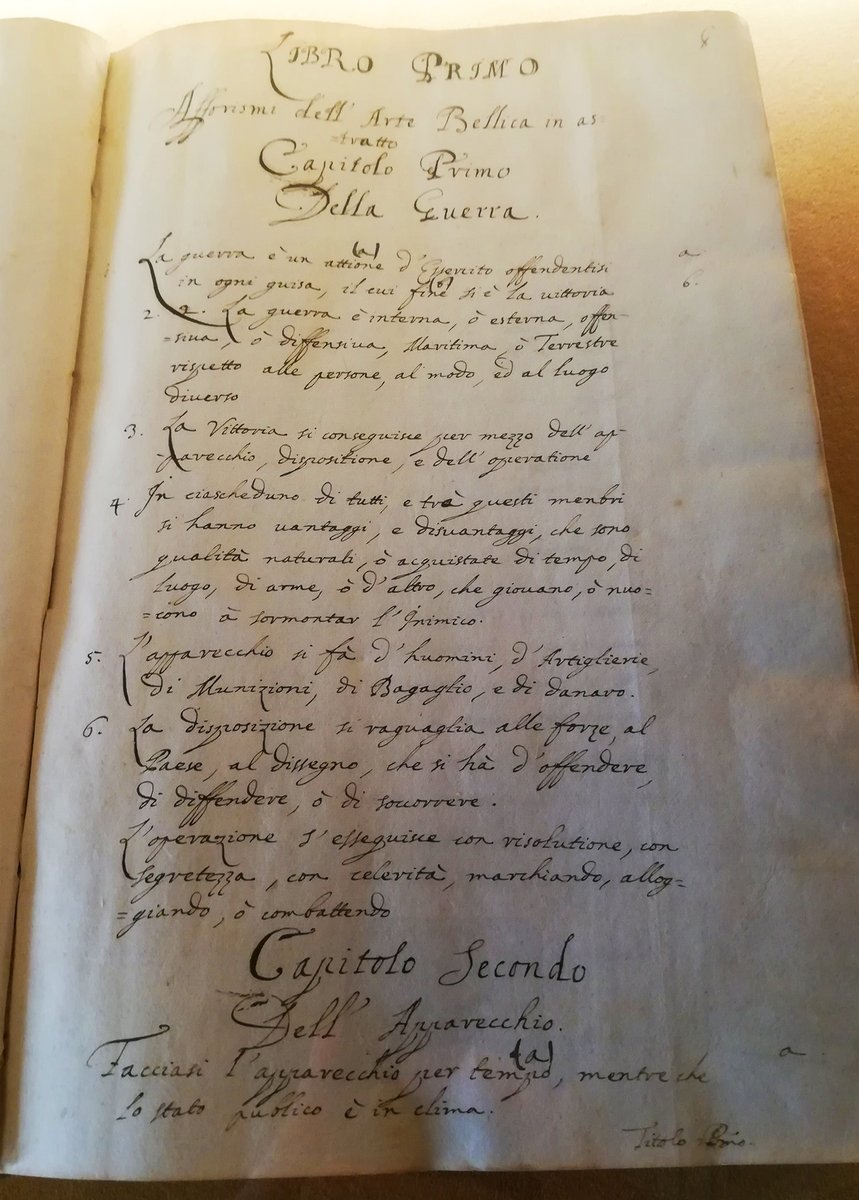 6
LIBRO PRIMO
Afforismi dell' Arte Bellica in as=
=tratto
Capitolo Primo
Della Guerra.
La guerra è un attione (a) d'Essercito offendentisi a
in ogni guisa, il cui fine (b) si è la vittoria 6.
2. 2. La guerra è interna, ò esterna, offen-
=siva, ò diffensiva, Maritima, ò Terrestre
rispetto alle persone, al modo, ed al luogo
diverso
3. La Vittoria si conseguisce per mezzo dell' ap-
-parecchio, dispositione, e dell' operatione
4. In ciascheduno di tutti, e trè questi menbri
si hanno vantaggi, e disvantaggi, che sono
qualità naturali, ò acquistate di tempo, di
luogo, di arme, ò d'altro, che giovano, ò nuo=
=cono à sormontar l'Inimico.
5. L'apparecchio si fà d'huomini, d'Artiglierie,
di Munizioni, di Bagaglio, e di danaro.
6. La disposizione si raguaglia alle forze, al
Paese, al dissegno, che si hà d'offendere,
di diffendere, ò di soccorrere.
L'operazione s'esseguisce con risolutione, con
segretezza, con celerità, marchiando, allog=
=giando, ò combattendo
Capitolo Secondo
Dell' Apparecchio.
Facciasi l'apparecchio per tempo (a), mentre che a
lo stato publico è in clima.
Titolo Pmo.